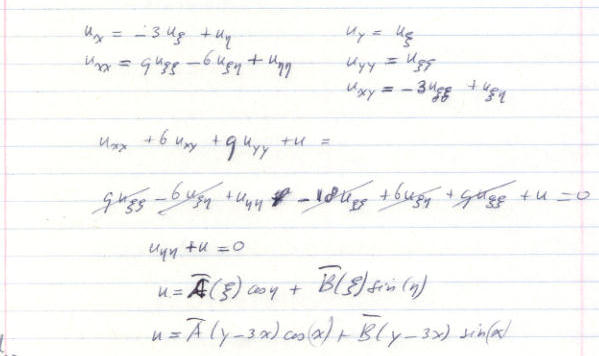 u_x = -3u_ξ + u_η u_y = u_ξ
u_xx = 9u_ξξ - 6u_ξη + u_ηη u_yy = u_ξξ
u_xy = -3u_ξξ + u_ξη
u_xx + 6u_xy + 9u_yy + u =
9u_ξξ - 6u_ξη + u_ηη - 18u_ξξ + 6u_ξη + 9u_ξξ + u = 0
u_ηη + u = 0
u = A̅(ξ) cosη + B̅(ξ) sin(η)
u = A̅(y-3x) cos(x) + B̅(y-3x) sin(x